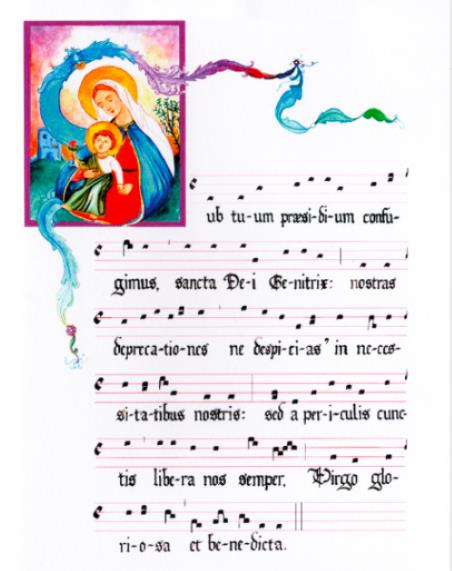 Sub tu-um præsi-di-um confu-
gimus, sancta De-i Ge-nitrix: nostras
depreca-tio-nes ne despi-ci-as’ in ne-ces-
si-ta-tibus nostris: sed a per-i-culis cunc-
tis libe-ra nos semper, Virgo glo-
ri-o-sa et be-ne-dicta.